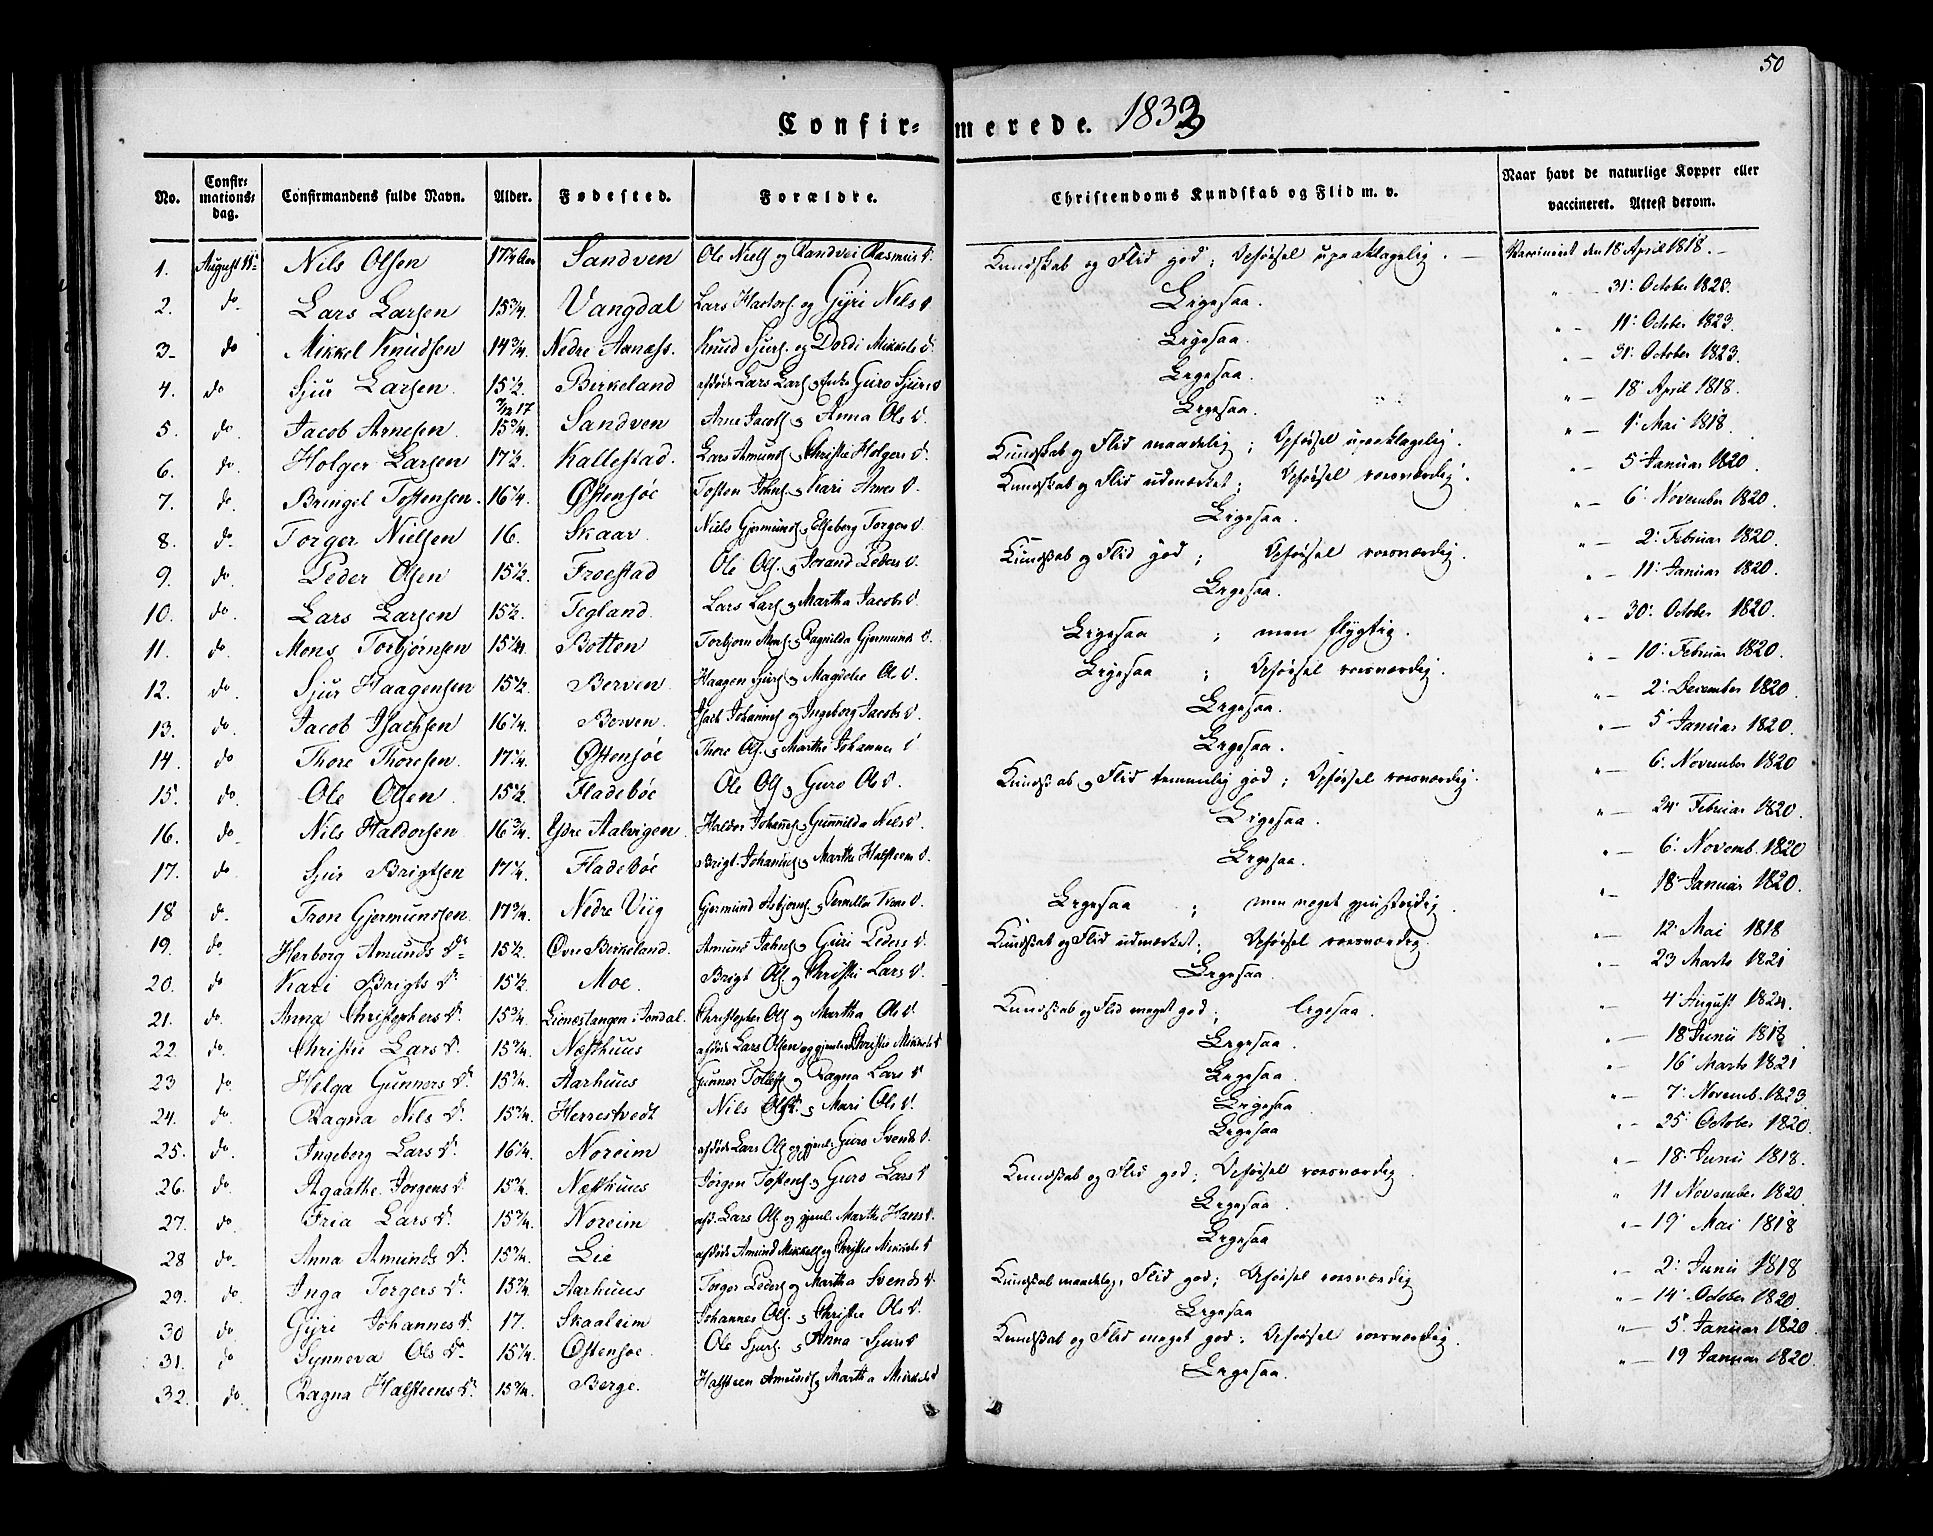 50
Confirmerede. 1833
No. Confirmationsdag. Confirmandens fulde Navn. Alder. Fødested. Forældre. Christendoms Kundskab og Flid m. v. Naar havt de naturlige Kopper eller vaccineret. Attest derom.
1. August 11te Nils Olsen 17 1/4 Aar Sandven Ole Niels og Randvei Rasmus D. Kundskab og Flid god; Opførsel upaaklagelig. Vaccineret den 18 April 1818.
2. do Lars Larsen 15 3/4. Vangdal Lars Hactors. og Gyri Nels D Ligesaa. " 31: October 1823.
3 do Mikkel Knudsen 14 3/4. Nedre Aanæss. Knud Sjurs. og Dordi Mikkels D. Ligesaa. " 11: October 1823.
4. do Sjur Larsen 15 1/2. Birkeland afdøde Lars Lars og Enke Guro Sjurs D Ligesaa. " 31: October 1823.
5. do. Jacob Arnesen. 15 3/4. Sandven Arne Jacobs og Anna Ols D. Ligesaa. " 18: April 1818.
6. do. Holger Larsen 17 1/2. Kallestad. Lars Amunds og Christie Holgers D. Kundskab og Flid maadelig; Opførsel upaaklagelig. " 1: Mai 1818.
7. do. Bringel Tostensen. 16 1/4. Østensøe Tosten Johns. og Kari Arnes D. Kundskab og Flid udmærket; Opførsel roesværdig. " 5: Januar 1820.
8. do. Torger Nielsen 16. Skaar. Niels Gjermunds og Elseberg Torgers D. Ligesaa. " 6: November 1820.
9. do. Peder Olsen 15 1/2. Froestad Ole Ols. og Jorand Peders D. Kundskab og Flid god; Opførsel roesværdig. " 2: Februar 1820.
10. do. Lars Larsen 15 1/2. Tegland. Lars Lars og Martha Jacobs D. Ligesaa. " 11: Januar 1820.
11. do. Mons Torbjørnsen 15 1/4. Botten Torbjørn Mons. og Ragnilda Gjermunds D. Ligesaa; men flygtig. " 30: October 1820.
12. do. Sjur Haagensen 15 1/2. Berven Haagen Sjurs. og Magdele Ols D. Ligesaa; Opførsel roesværdig. " 10: Februar 1820.
13. do. Jacob Isachsen 16 1/4. Berven. Isach Johannes og Ingeborg Jacobs D. Ligesaa. " 2: December 1820.
14. do. Thore Thoresen. 17 1/4. Østensøe Thore Ols. og Marthe Johannes D Ligesaa. " 5 Januar 1820.
15. do. Ole Olsen. 15 1/2. Fladebøe Ole Ols og Guro Ols D. Kundskab og Flid temmelig god; Opførsel roesværdig. " 6: November 1820
16. do. Nils Haldorsen 16 3/4. Ydre Aalvigen Haldor Johannes og Gunnilda Nels D. Ligesaa. " 24: Februar 1820.
17. do. Sjur Brigtsen 17 1/4. Fladebøe Brigt. Johannes og Marthe Halsteens D. Ligesaa. " 6: Novemb. 1820
18 do. Tron Gjermundsen. 17 3/4. Nedre Viig Gjermund Asbjørns. og Pernella Trons D. Ligesaa; men noget gjenstridig. " 18 Januar 1820.
19. do. Herborg Amunds Dr 15 1/2. Øvre Birkeland. Amund Johns. og Guri Peders D. Kundskab og Flid udmærket; Opførsel roesværdig. " 12 Mai 1818
20. do Kari Brigts Dr 15 1/2. Moe. Brigt Ols og Christie Lars D. Ligesaa. " 23 Marts 1821
21. do. Anna Christophers Dr. 15 3/4. Lionæstangen i Aandal. Christopher Ols og Martha Ols D Kundskab og Flid meget god; ligesaa. " 4 August 1824.
22. do. Christie Lars Dr. 15 3/4. Næsthuus afdøde Lars Olsen og gjenl. Christie Mikkels D Ligesaa. " 18 Junii 1818
23 do. Helga Gunners Dr. 15 3/4. Aarhuus Gunner Tollefs og Ragna Lars D Ligesaa. " 16: Marts 1821
24. do. Ragna Nils Dr 15 3/4. Herrestvedt Nils Ols. og Mari Ols D. Ligesaa " 7: Novemb. 1823
25. do. Ingeborg Lars Dr. 16 1/4. Noreim afdøde Lars Ols og gjenl. Guro Svends D. Ligesaa " 25: October 1820.
26. do. Agaathe Jørgens Dr 15 3/4. Næsthuus Jørgen Tostens. og Guro Lars D Kundskab og Flid god; Opførsel roesværdig. " 18: Junii 1818.
27. do Fria Lars Dr. 15 3/4. Noreim afd. Lars Ols og gjenl. Marthe Hans D. Ligesaa " 11 November 1820.
28 do. Anna Amunds Dr. 15 3/4. Lie afdøde Amund Mikkels og Christie Mikkels D Ligesaa " 19: Mai 1818
29. do. Inga Torgers Dr. 15 3/4. Aarhuus Torger Peders og Martha Svends D. Kundskab maadelig, Flid god; Opførsel roesværdig " 2: Junii 1818
30 do. Gyri Johannes Dr. 17. Skaaleim Johannes Ols. og Christie Ols D. Ligesaa " 14: October 1820.
31. do Synneva Ols Dr 15 1/4. Østensøe. Ole Sjurs. og Anna Sjurs D Kundskab og Flid meget god; Opførsel roesværdig. " 5: Januar 1820.
32. do. Ragna Halsteens Dr. 15 3/4. Berge. Halsteen Amunds og Martha Mikkels D Ligesaa. " 19 Januar 1820.